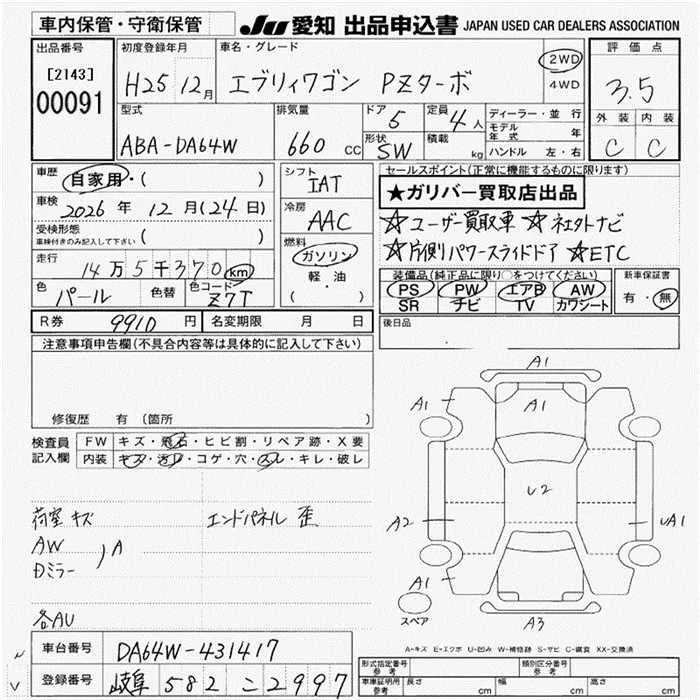 車内保管・守衛保管
JU 愛知 出品申込書 JAPAN USED CAR DEALERS ASSOCIATION
出品番号
[2143]
00091
初度登録年月
H25 12月
車名・グレード
エブリィワゴン PZターボ
2WD
4WD
評価点
3.5
外装 内装
C C
型式
ABA-DA64W
排気量
660 CC
ドア
5
定員
4人
形状
SW
積載
kg
ディーラー・並行
モデル年式 年
ハンドル 左・右
車歴
自家用・( )
車検
2026年 12月(24日)
受検形態
車検付きのみ記入して下さい ( )
走行
14万5千370 km
色
パール
色替
色コード
Z7T
シフト
IAT
冷房
AAC
燃料
ガソリン
軽・油
( )
セールスポイント(正常に機能するものに限ります)
★ガリバー買取店出品
☆ユーザー買取車 ☆社外ナビ
☆片側パワースライドドア ☆ETC
装備品(純正品に限り○をつけてください)
PS PW エアB AW
SR ナビ TV カワシート
新車保証書
有・無
R券 9910円
名変期限 月 日
後日品
注意事項申告欄(不具合内容等は具体的に記入して下さい)
修復歴 有 (箇所 )
検査員
記入欄
FW キズ・飛石・ヒビ割・リペア跡・X要
内装 キズ・汚レ・コゲ・穴・スレ・キレ・破レ
荷室キズ
エンドパネル 歪
AW
Dミラー
) A
各AU
A1
A1
A1
A1
U2
A2
UA1
A1
A3
スペア
A-キズ E-エクボ U-凹み W-補修跡 S-サビ C-腐食 XX-交換済
車台番号 DA64W-431417
登録番号 岐阜 582 こ 2997
形式指定番号
参考
類別区分番号
参考
車庫証明用
参考
長さ cm
幅 cm
高さ cm